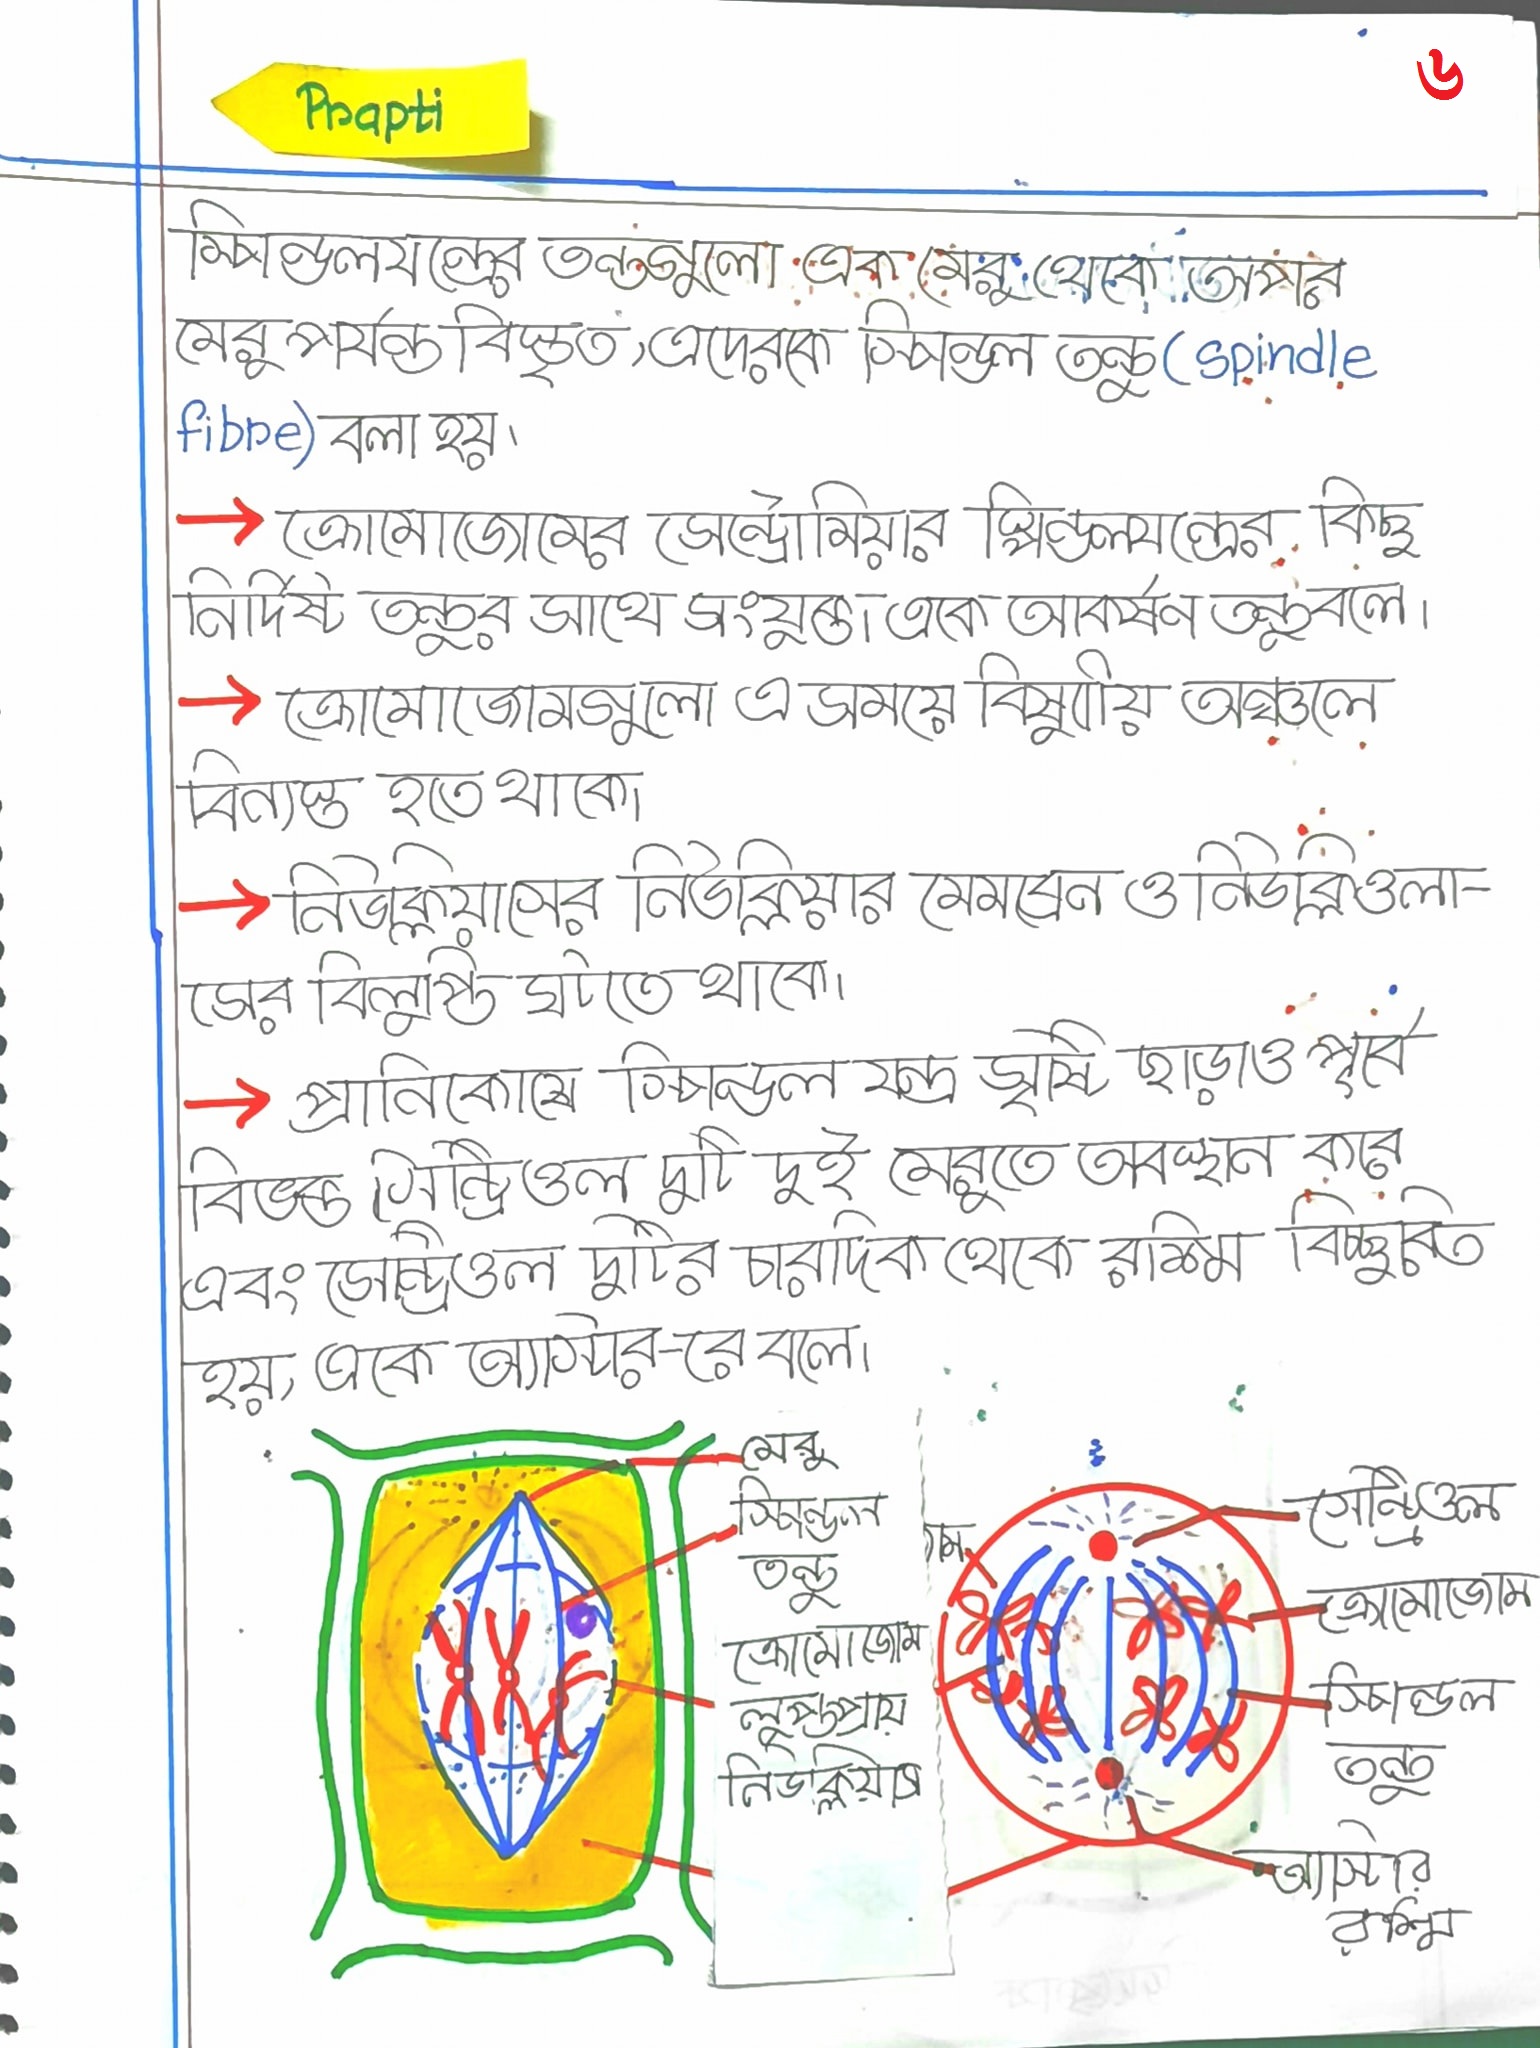 Prapti
৬
স্পিন্ডলযন্ত্রের তন্তুগুলো এক মেরু থেকে অপর
মেরু পর্যন্ত বিস্তৃত, এদেরকে স্পিন্ডল তন্তু (spindle
fibre) বলা হয়।
→ ক্রোমোজোমের সেন্ট্রোমিয়ার স্পিন্ডলযন্ত্রের কিছু
নির্দিষ্ট তন্তুর সাথে সংযুক্ত। একে আকর্ষন তন্তু বলে।
→ ক্রোমোজোমগুলো এ সময়ে বিষুবীয় অঞ্চলে
বিন্যস্ত হতে থাকে।
→ নিউক্লিয়াসের নিউক্লিয়ার মেমব্রেন ও নিউক্লিওলা-
সের বিলুপ্তি ঘটতে থাকে।
→ প্রানিকোষে স্পিন্ডল যন্ত্র সৃষ্টি ছাড়াও পূর্বে
বিভক্ত সেন্ট্রিওল দুটি দুই মেরুতে অবস্থান করে
এবং সেন্ট্রিওল দুটির চারদিক থেকে রশ্মি বিচ্ছুরিত
হয়, একে অ্যাস্টার-রে বলে।
মেরু
স্পিন্ডল
তন্তু
ক্রোমোজোম
লুপ্তপ্রায়
নিউক্লিয়াস
সেন্ট্রিওল
ক্রোমোজোম
স্পিন্ডল
তন্তু
অ্যাস্টার
রশ্মি